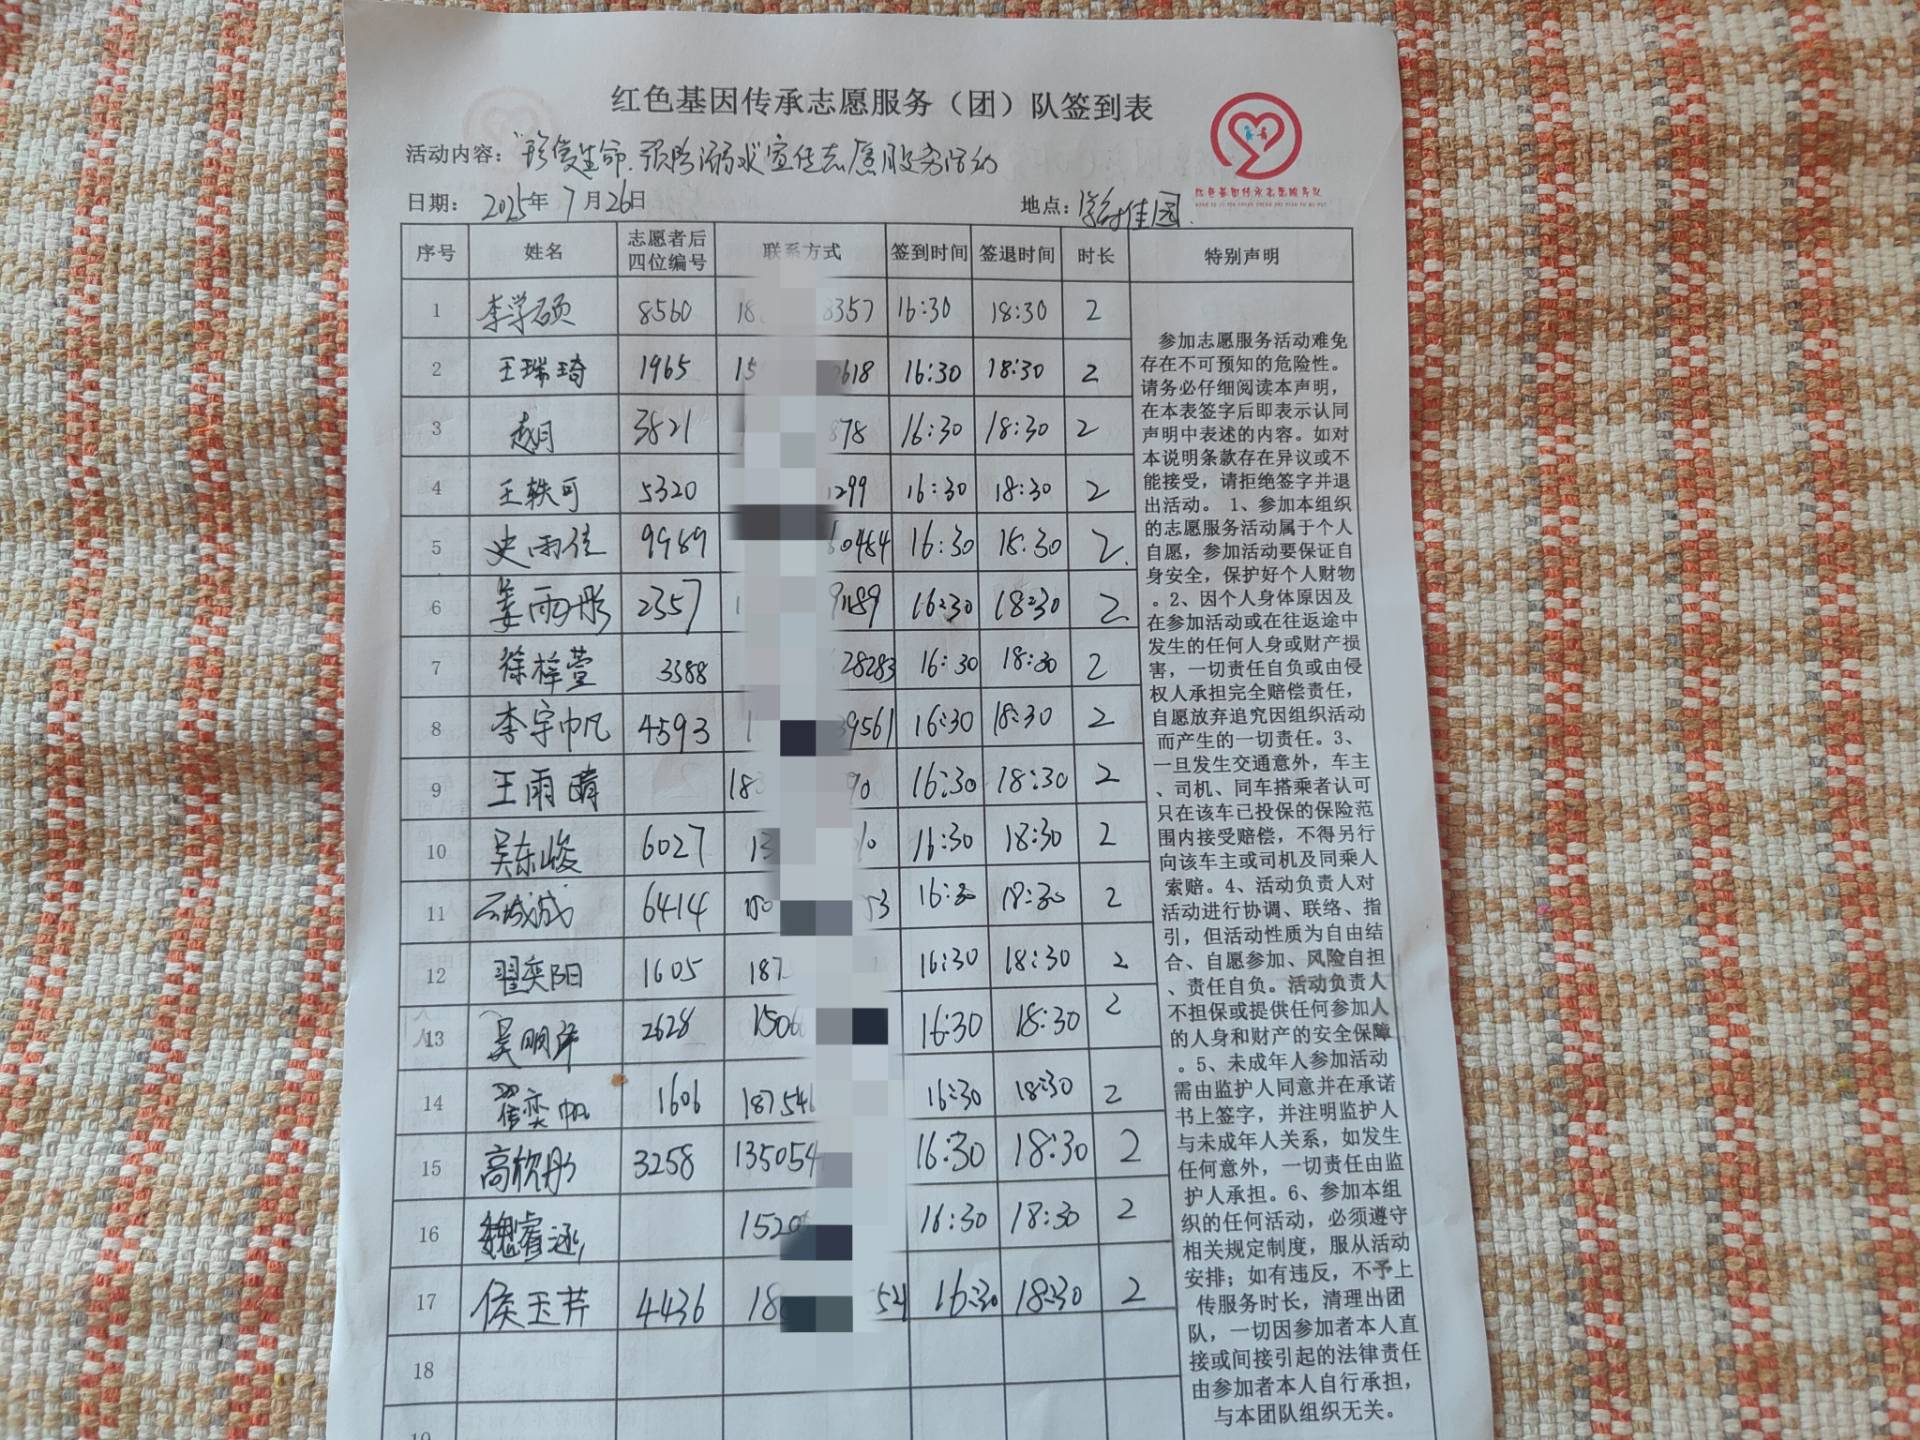 红色基因传承志愿服务（团）队签到表
活动内容：“珍爱生命.预防溺水宣传志愿服务活动
日期： 2025年 7月26日 地点：学府佳园
红色基因传承志愿服务队
序号 姓名 志愿者后四位编号 联系方式 签到时间 签退时间 时长 特别声明
1 李学硕 8560 18 3357 16:30 18:30 2
2 王瑞琦 1965 15 618 16:30 18:30 2
3 赵月 3821 878 16:30 18:30 2
4 王轶可 5320 1299 16:30 18:30 2
5 史雨佳 9989 60484 16:30 18:30 2
6 姜雨彤 2357 9189 16:30 18:30 2
7 徐梓萱 3388 28283 16:30 18:30 2
8 李宇帆 4593 1 39561 16:30 18:30 2
9 王雨晴 183 90 16:30 18:30 2
10 吴东峻 6027 13 10 16:30 18:30 2
11 6414 150 53 16:30 18:30 2
12 翟奕阳 1605 187 16:30 18:30 2
13 吴明泽 2628 1506 16:30 18:30 2
14 翟奕帆 1606 187546 16:30 18:30 2
15 高欣彤 3258 135054 16:30 18:30 2
16 魏睿涵 1520 16:30 18:30 2
17 侯玉芹 4436 18 52 16:30 18:30 2
18
19
参加志愿服务活动难免
存在不可预知的危险性。
请务必仔细阅读本声明，
在本表签字后即表示认同
声明中表述的内容。如对
本说明条款存在异议或不
能接受，请拒绝签字并退
出活动。 1、参加本组织
的志愿服务活动属于个人
自愿，参加活动要保证自
身安全，保护好个人财物
。2、因个人身体原因及
在参加活动或在往返途中
发生的任何人身或财产损
害，一切责任自负或由侵
权人承担完全赔偿责任，
自愿放弃追究因组织活动
而产生的一切责任。3、
一旦发生交通意外，车主
、司机、同车搭乘者认可
只在该车已投保的保险范
围内接受赔偿，不得另行
向该车主或司机及同乘人
索赔。4、活动负责人对
活动进行协调、联络、指
引，但活动性质为自由结
合、自愿参加、风险自担
、责任自负。活动负责人
不担保或提供任何参加人
的人身和财产的安全保障
。5、未成年人参加活动
需由监护人同意并在承诺
书上签字，并注明监护人
与未成年人关系，如发生
任何意外，一切责任由监
护人承担。6、参加本组
织的任何活动，必须遵守
相关规定制度，服从活动
安排；如有违反，不予上
传服务时长，清理出团
队，一切因参加者本人直
接或间接引起的法律责任
由参加者本人自行承担，
与本团队组织无关。